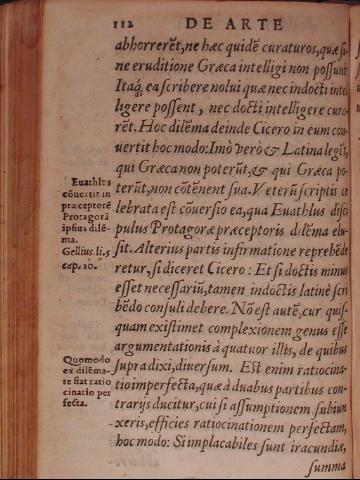 112 DE ARTE
abhorrerẽt, ne hæc quidẽ curaturos, quæ si-
ne eruditione Græca intelligi non possunt
Itaq́; ea scribere nolui quæ nec indocti inte
ligere possent, nec docti intelligere cura-
rẽt. Hoc dilẽma deinde Cicero in eum con-
uertit hoc modo: Imò verò & Latina legẽt,
qui Græca non poterũt, & qui Græca po-
terũt, non cõtẽnent sua. Veterũ scriptis ce
lebrata est cõuersio ea, qua Euathlus disci
pulus Protagoræ præceptoris dilẽma elu-
sit. Alterius partis infirmatione reprehẽde
retur, si diceret Cicero: Et si doctis minus
esset necessariũ, tamen indoctis latinè scri
bẽdo consuli debere. Nõ est autẽ, cur quis-
quam existimet complexionem genus esse
argumentationis à quatuor illis, de quibus
supra dixi, diuersum. Est enim ratiocina-
tio imperfecta, quæ à duabus partibus con-
trarijs ducitur, cui si assumptionem subiun
xeris, efficies ratiocinationem perfectam,
hoc modo: Si implacabiles sunt iracundiæ,
summa
Euathlus
cõuertit in
præceptorẽ
Protagorã
ipsius dilẽ-
ma.
Gellius. li. 5
cap. 10.
Quomodo
ex dilẽma-
te fiat ratio
cinatio per
fecta.